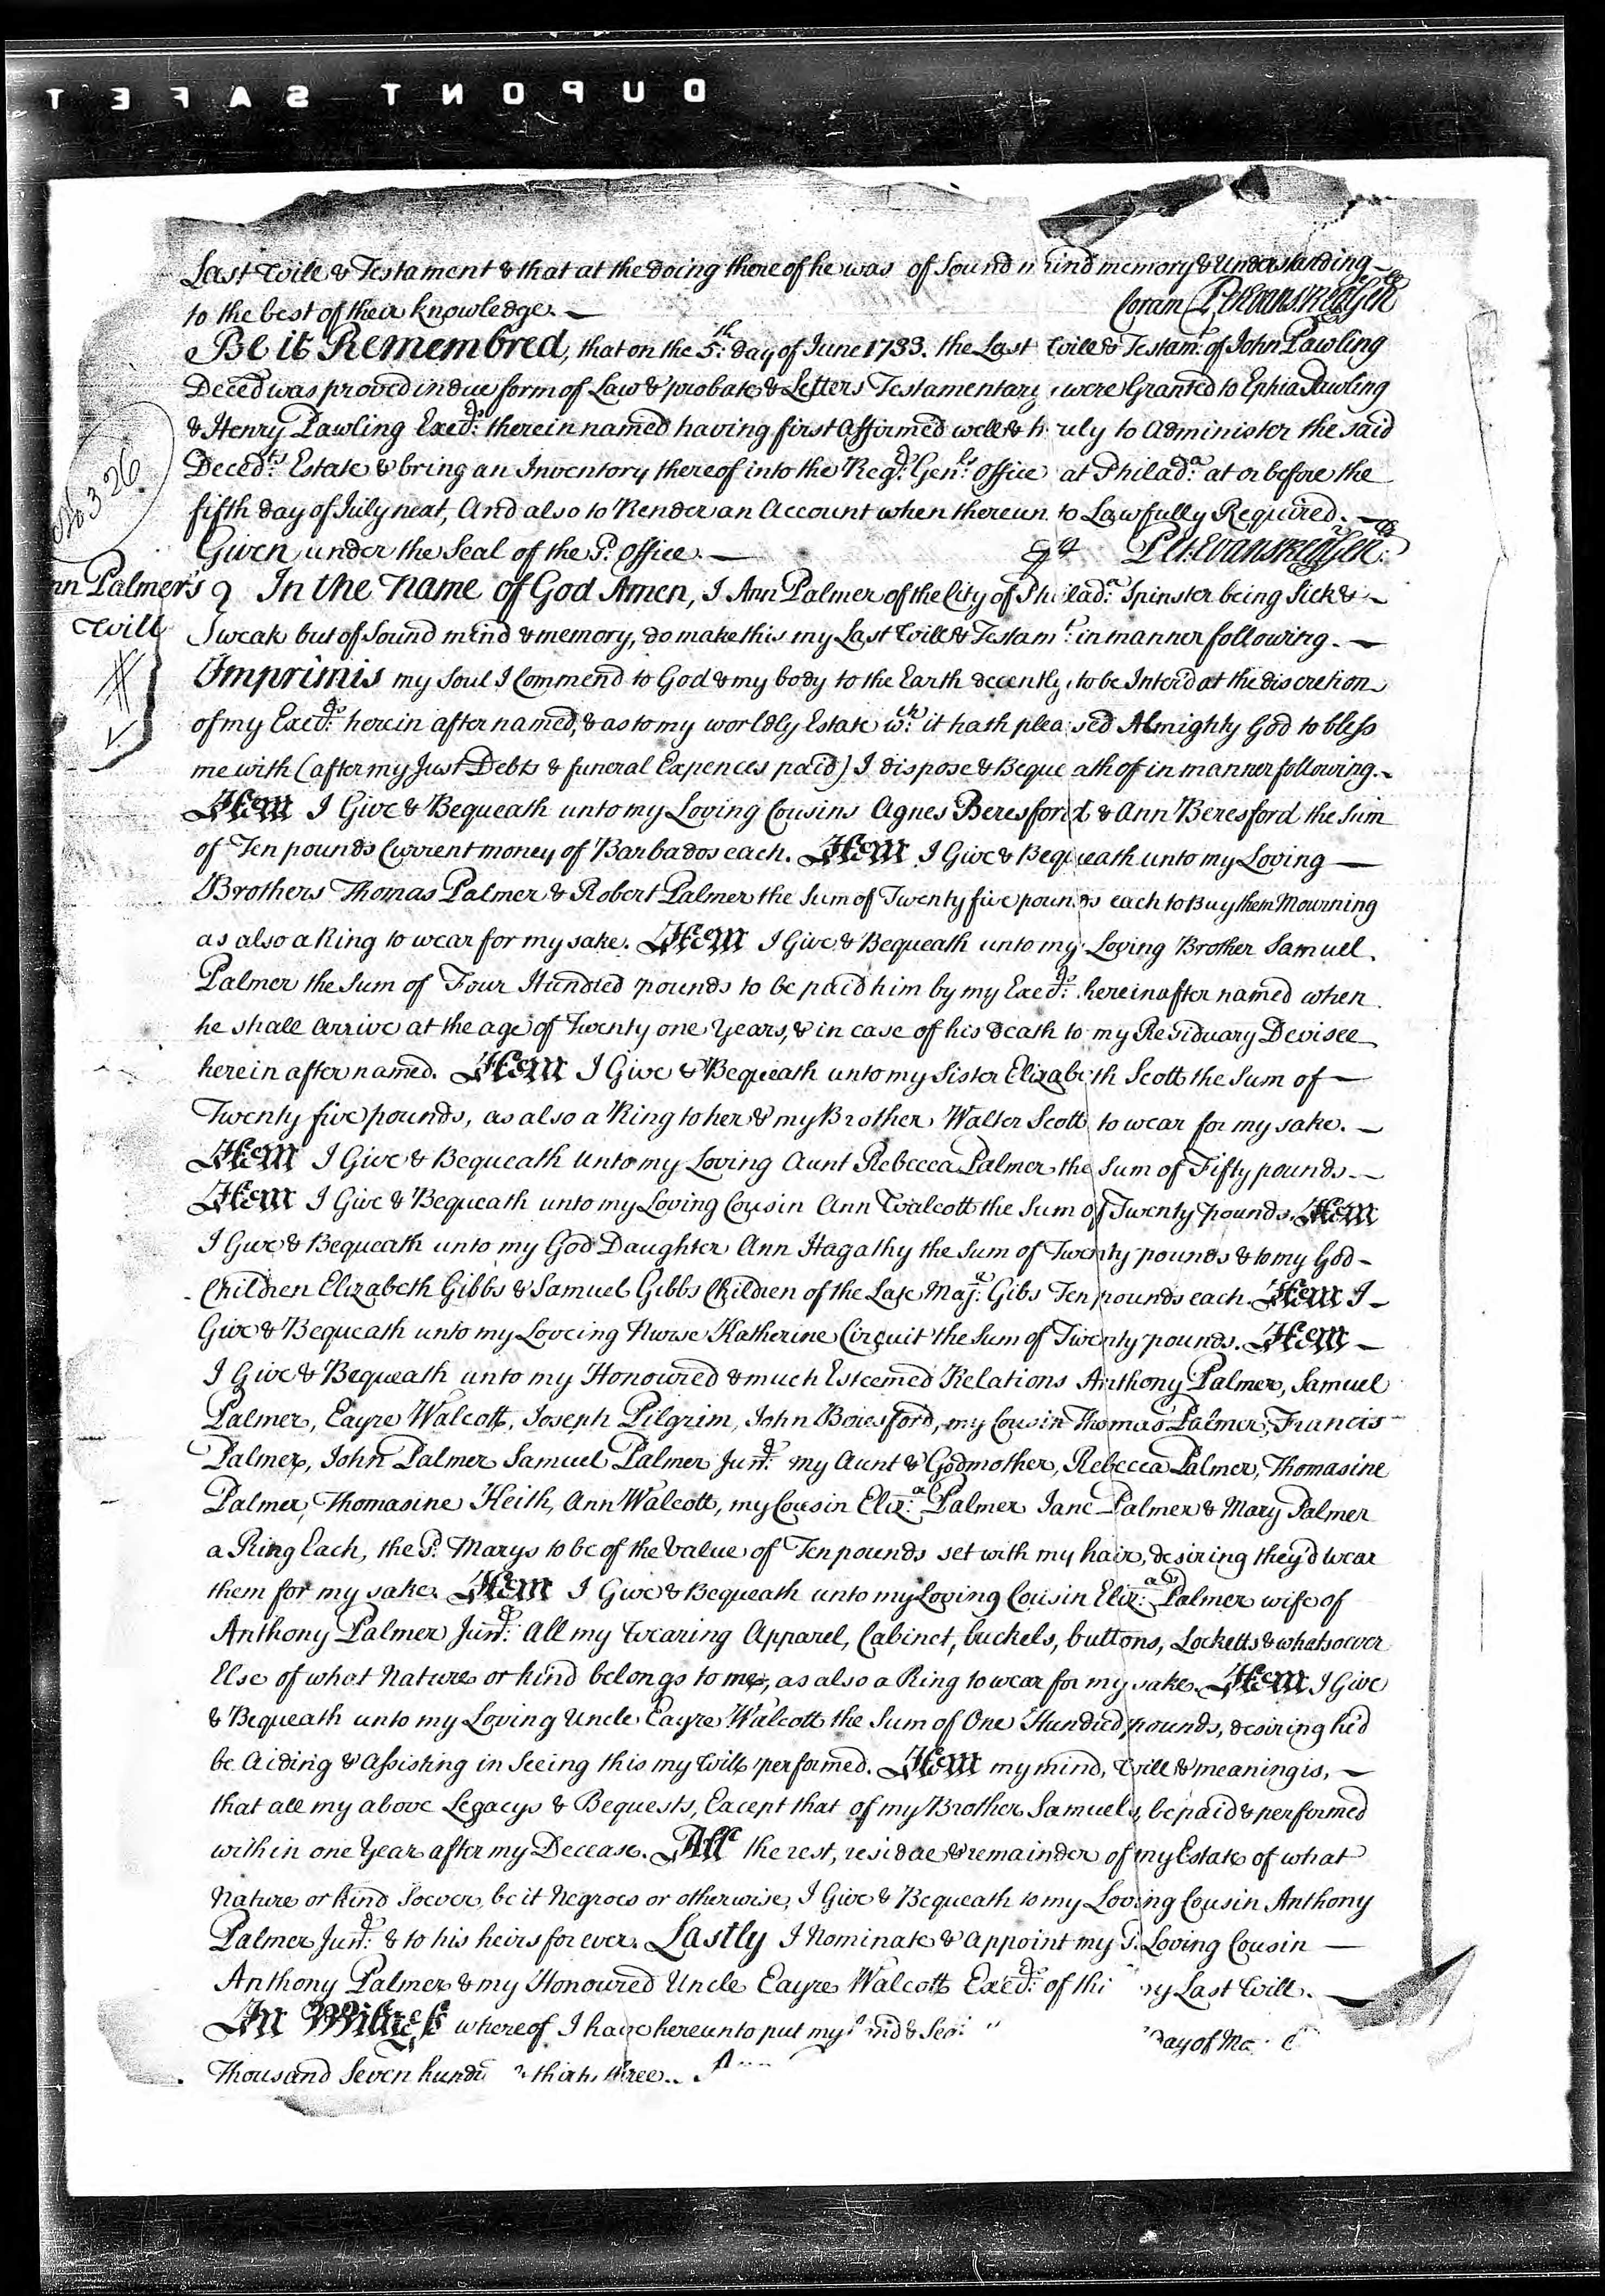 DUPONT SAFET
Last Will & Testament & that at the doing thereof he was of Sound mind memory & Understanding
to the best of their knowledge. Coram Pet. Evans Reg. Gen.
Be it Remembred, that on the 5th: day of June 1733. the Last Will & Testamt. of John Pawling
Deced was proved in due form of Law & probate & Letters Testamentary were Granted to Ephia Pawling
& Henry Pawling Exec.rs therein named having first Affirmed well & truly to Administer the said
Deced.ts Estate & bring an Inventory thereof into the Reg.r Gen.ls Office at Philad.a at or before the
fifth day of July next, And also to Render an Account when thereunto Lawfully Required.
Given under the Seal of the sd. Office. Pet. Evans Reg. Gen.
No 326
nn Palmer's
Will
In the Name of God Amen, I Ann Palmer of the City of Philad.a Spinster being Sick &
weak but of Sound mind & memory, do make this my Last Will & Testam.t in manner following.
Imprimis my Soul I Commend to God & my body to the Earth decently to be Inter'd at the discretion
of my Exec.rs herein after named, & as to my worldly Estate w.ch it hath pleased Almighty God to bless
me with (after my Just Debts & funeral Expences paid) I dispose & Bequeath of in manner following.
Item I Give & Bequeath unto my Loving Cousins Agnes Beresford & Ann Beresford the Sum
of Ten pounds Current money of Barbados each. Item I Give & Bequeath unto my Loving
Brothers Thomas Palmer & Robert Palmer the Sum of Twenty five pounds each to Buy them Mourning
as also a Ring to wear for my sake. Item I Give & Bequeath unto my Loving Brother Samuel
Palmer the Sum of Four Hundred pounds to be paid him by my Exec.rs hereinafter named when
he shall arrive at the age of Twenty one Years, & in case of his death to my Residuary Devisee
herein after named. Item I Give & Bequeath unto my Sister Elizabeth Scott the Sum of
Twenty five pounds, as also a Ring to her & my Brother Walter Scott to wear for my sake.
Item I Give & Bequeath Unto my Loving Aunt Rebecca Palmer the Sum of Fifty pounds.
Item I Give & Bequeath unto my Loving Cousin Ann Walcott the Sum of Twenty Pounds. Item
I Give & Bequeath unto my God Daughter Ann Hagathy the Sum of Twenty pounds & to my God-
Children Elizabeth Gibbs & Samuel Gibbs Children of the Late Maj.r Gibs Ten pounds each. Item I
Give & Bequeath unto my Loveing Nurse Katherine Circuit the Sum of Twenty pounds. Item
I Give & Bequeath unto my Honoured & much Esteemed Relations Anthony Palmer, Samuel
Palmer, Eayre Walcott, Joseph Pilgrim, John Beresford, my Cousin Thomas Palmer, Francis
Palmer, John Palmer Samuel Palmer Jun.r my Aunt & Godmother, Rebecca Palmer, Thomasine
Palmer, Thomasine Keith, Ann Walcott, my Cousin Eliz.a Palmer Jane Palmer & Mary Palmer
a Ring Each, the sd. Marys to be of the Value of Ten pounds set with my hair, desiring they'd wear
them for my sake. Item I Give & Bequeath unto my Loving Cousin Eliz.a Palmer wife of
Anthony Palmer Jun.r All my Wearing Apparel, Cabinet, buckels, buttons, Locketts & whatsoever
Else of what Nature or kind belongs to me, as also a Ring to wear for my sake. Item I Give
& Bequeath unto my Loving Uncle Eayre Walcott the Sum of One Hundred pounds, desiring he'd
be Aiding & Assisting in Seeing this my Will performed. Item my mind, Will & meaning is,
that all my above Legacys & Bequests, Except that of my Brother Samuels, be paid & performed
within one Year after my Decease. All the rest, residue & remainder of my Estate of what
Nature or kind Soever, be it Negroes or otherwise, I Give & Bequeath to my Loving Cousin Anthony
Palmer Jun.r & to his heirs for ever. Lastly I Nominate & appoint my sd. Loving Cousin
Anthony Palmer & my Honoured Uncle Eayre Walcott Exec.rs of thi my Last Will.
In Witness whereof I have hereunto put my & Day of
Thousand Seven hund thirty three.